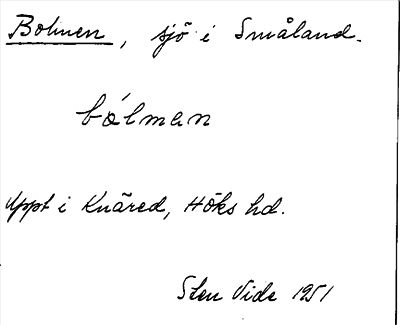 Bolmen, sjö i Småland.
bólman
Uppt i Knäred, Höks hd.
Sten Vide 1951